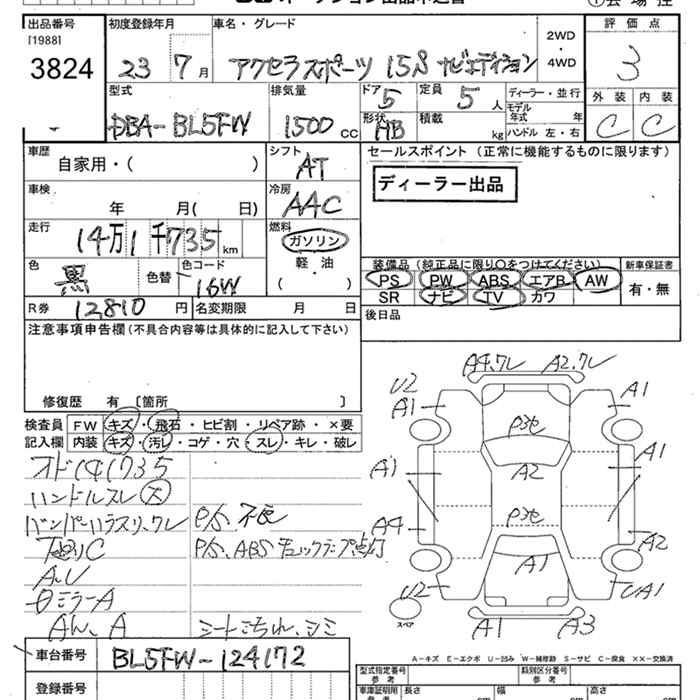 出品番号 初度登録年月 車名・グレード 2WD・4WD 評価点
[1988]
3824 23 7月 アクセラスポーツ 15S ナビエディション 3
型式 排気量 ドア 5 定員 5人 ディーラー・並行 外装 内装
DBA-BL5FW 1500cc 形状 HB 積載 kg モデル年式 年 ハンドル 左・右 C C
車歴 自家用・( ) シフト AT セールスポイント (正常に機能するものに限ります)
車検 年 月( 日) 冷房 AAC ディーラー出品
走行 14万1千735km 燃料 ガソリン
軽・油
( )
色 黒 色替 色コード 16W
装備品 (純正品に限り○をつけてください) 新車保証書
PS PW ABS エアB AW 有・無
SR ナビ TV カワ
R券 12810円 名変期限 月 日 後日品
注意事項申告欄 (不具合内容等は具体的に記入して下さい)
修復歴 有 〔箇所 〕
検査員記入欄 FW キズ・飛石・ヒビ割・リペア跡・×要
内装 キズ・汚レ・コゲ・穴・スレ・キレ・破レ
オド141735
ハンドルスレ大
P/S 不良
P/S、ABSチェックランプ点灯
A、U
ミラーA
シートこちれ、シミ
A4、ワレ A2、ワレ
U2
A1 A1
P3セ
A1 A2 A1
A4 P3セ A2
A1
U2 UA1
スペア A1 A3
車台番号 BL5FW-124172
登録番号
A-キズ E-エクボ U-凹み W-補修跡 S-サビ C-腐食 XX-交換済
型式指定番号 類別区分番号
車庫証明用参考 長さ cm 幅 cm 高さ cm